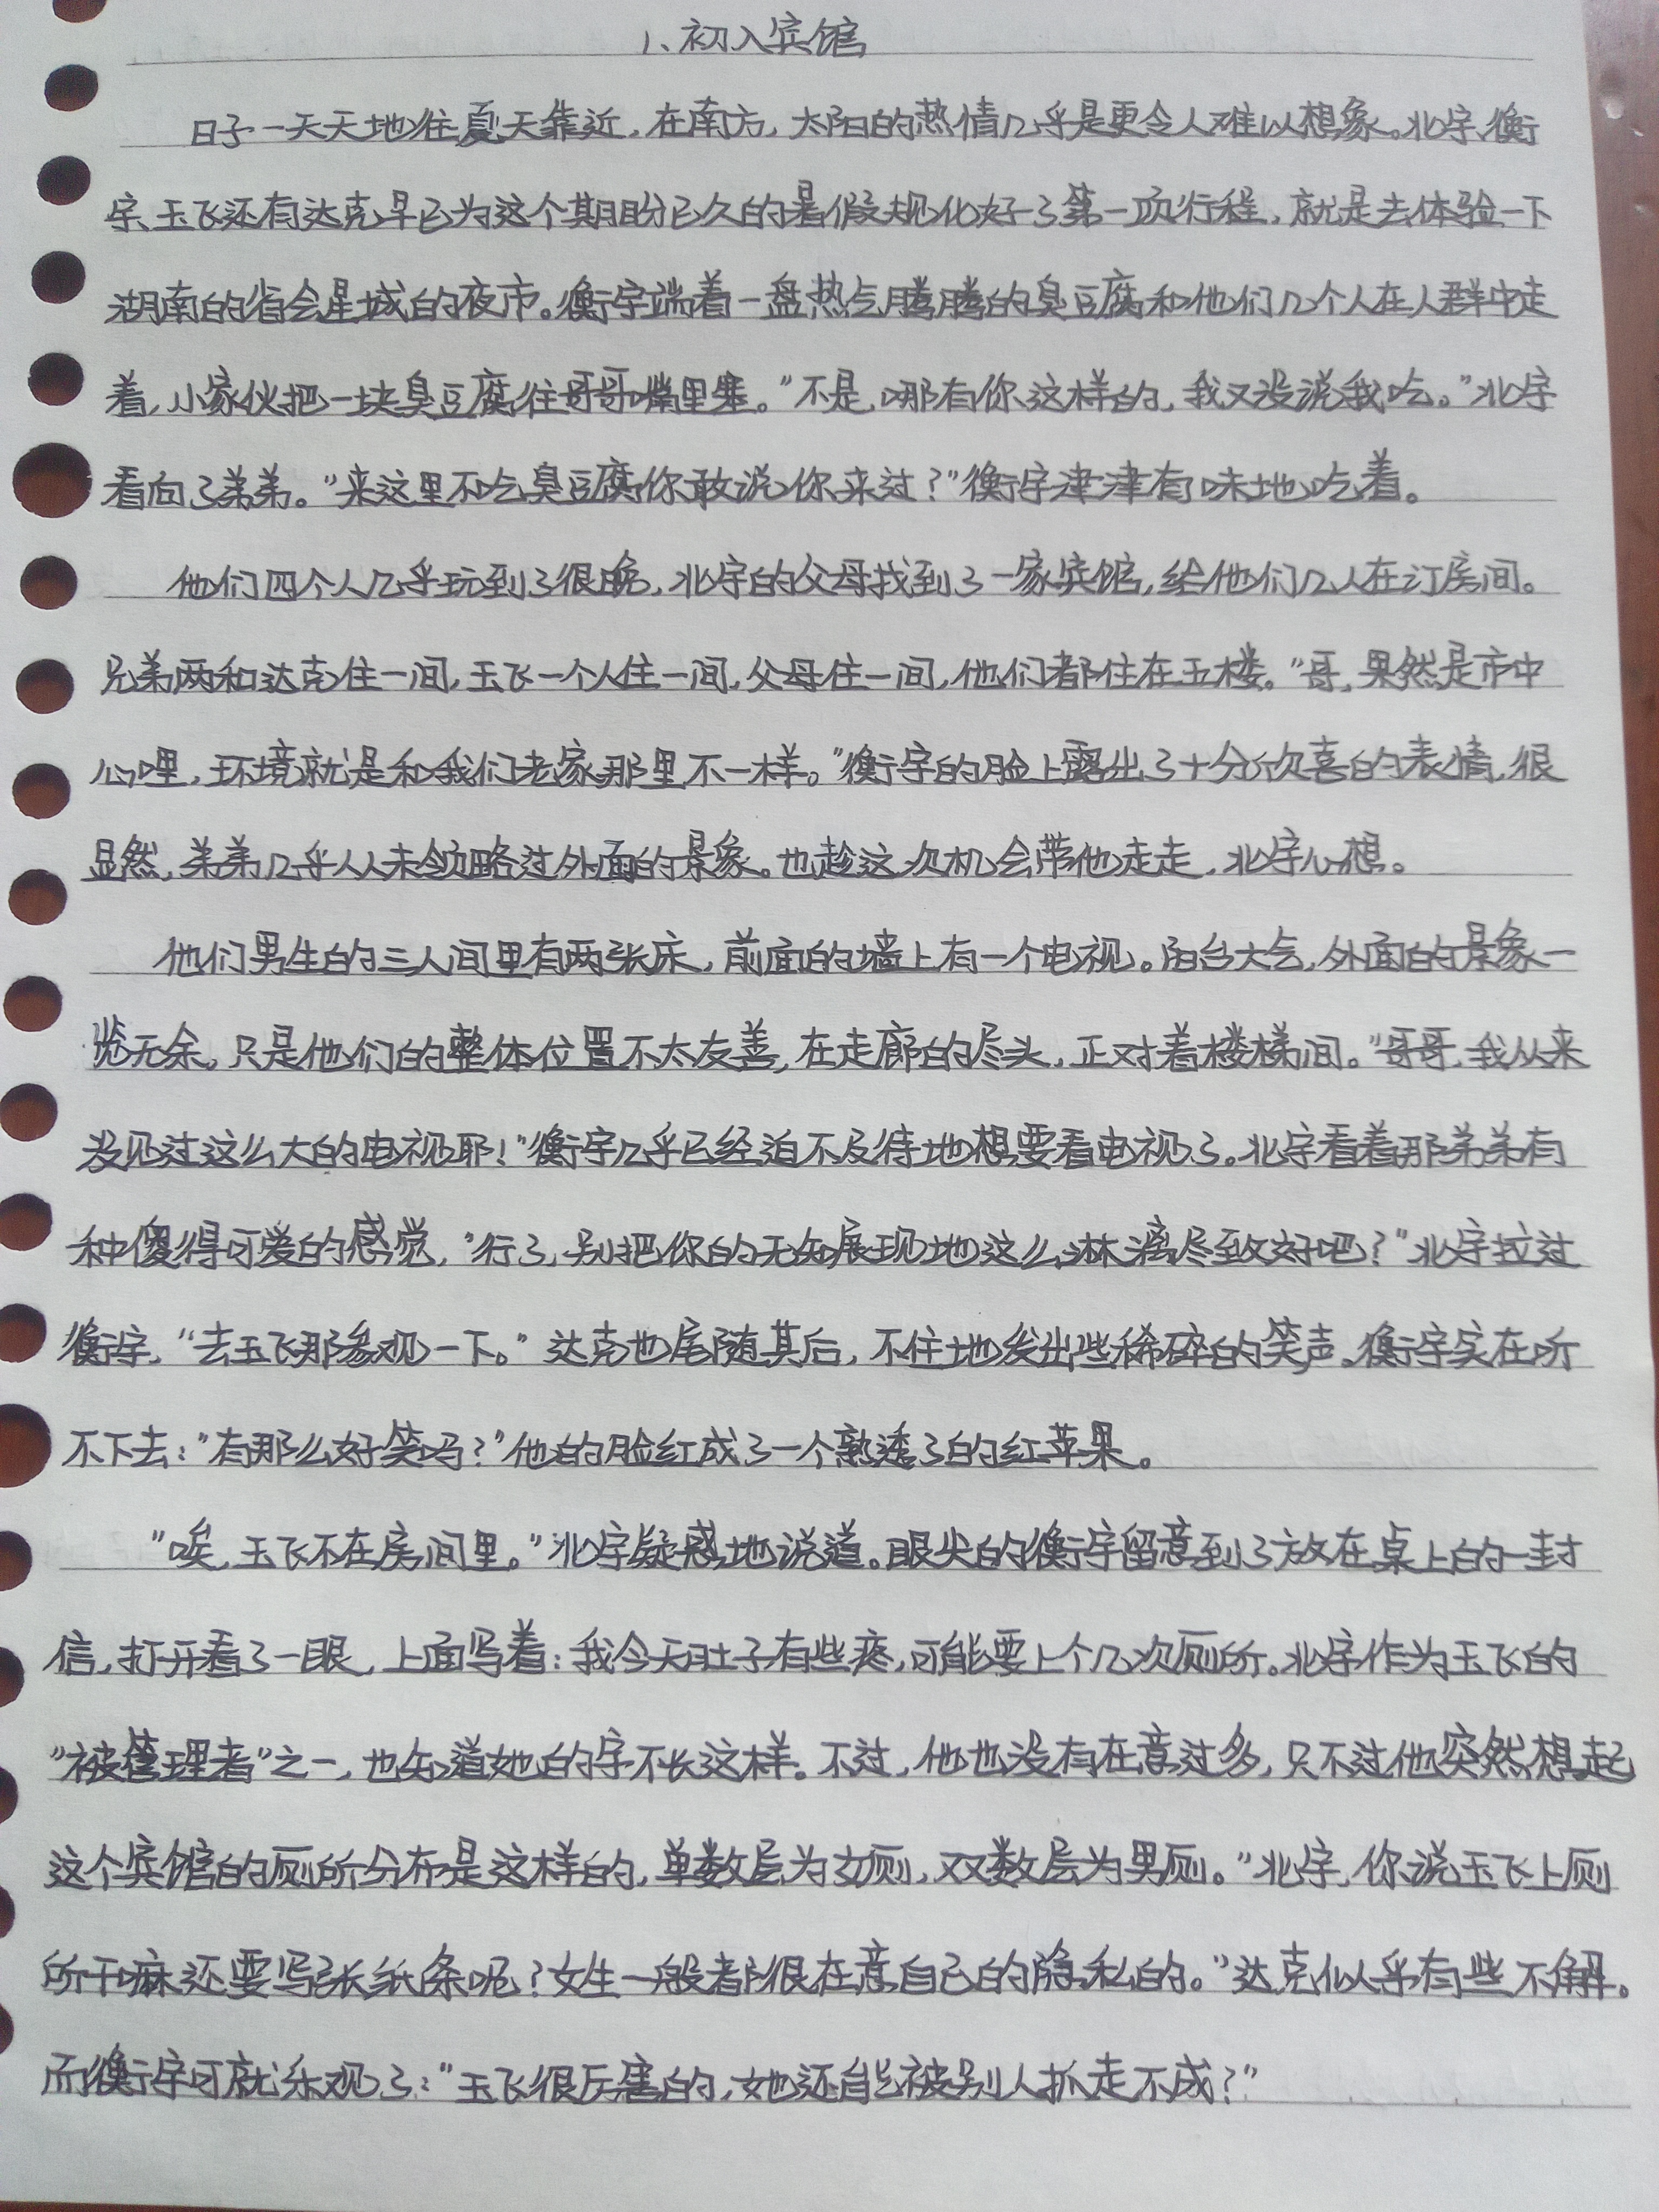 1、初入宾馆
日子一天天地往夏天靠近，在南方，太阳的热情几乎是更令人难以想象。北宇、衡
宇、玉飞还有达克早已为这个期盼已久的暑假规化好了第一项行程，就是去体验一下
湖南的省会星城的夜市。衡宇端着一盘热气腾腾的臭豆腐和他们几个人在人群中走
着，小家伙把一块臭豆腐往哥哥嘴里塞。"不是，哪有你这样的，我又没说我吃。"北宇
看向了弟弟。"来这里不吃臭豆腐你敢说你来过？"衡宇津津有味地吃着。
他们四个人几乎玩到了很晚，北宇的父母找到了一家宾馆，给他们几人在订房间。
兄弟两和达克住一间，玉飞一个人住一间，父母住一间，他们都住在五楼。"哥，果然是市中
心哩，环境就是和我们老家那里不一样。"衡宇的脸上露出了十分欣喜的表情，很
显然，弟弟几乎从未领略过外面的景象。也趁这次机会带他走走，北宇心想。
他们男生的三人间里有两张床，前面的墙上有一个电视。阳台大气，外面的景象一
览无余，只是他们的整体位置不太友善，在走廊的尽头，正对着楼梯间。"哥哥，我从来
没见过这么大的电视耶！"衡宇几乎已经迫不及待地想要看电视了。北宇看着那弟弟有
种傻得可爱的感觉，"行了，别把你的无知展现地这么淋漓尽致好吧？"北宇拉过
衡宇，"去玉飞那参观一下。"达克也尾随其后，不住地发出些稀碎的笑声。衡宇实在听
不下去："有那么好笑吗？"他的脸红成了一个熟透了的红苹果。
"唉，玉飞不在房间里。"北宇疑惑地说道。眼尖的衡宇留意到了放在桌上的一封
信，打开看了一眼，上面写着：我今天肚子有些疼，可能要上个几次厕所。北宇作为玉飞的
"被管理者"之一，也知道她的字不长这样。不过，他也没有在意过多，只不过他突然想起
这个宾馆的厕所分布是这样的，单数层为女厕，双数层为男厕。"北宇，你说玉飞上厕
所干嘛还要写张纸条呢？女生一般都很在意自己的隐私的。"达克似乎有些不解。
而衡宇可就乐观了："玉飞很厉害的，她还能被别人抓走不成？"